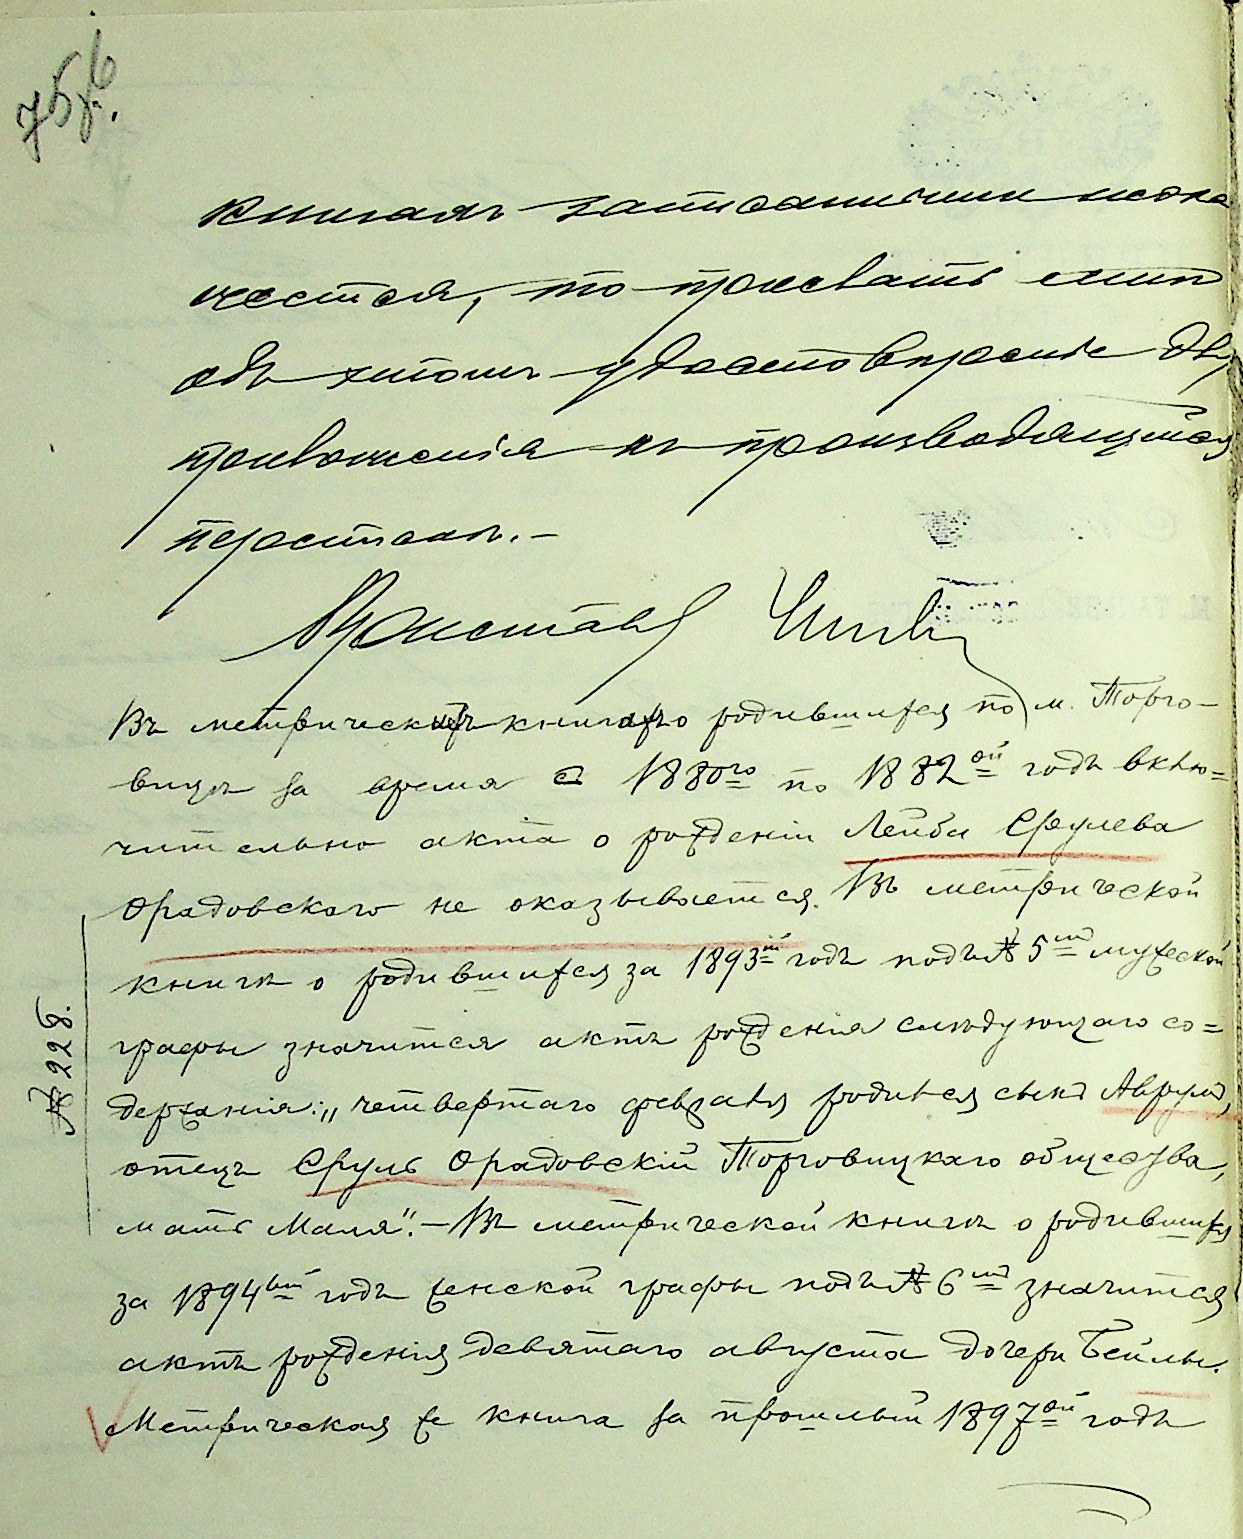 75 об.
книгахъ записанными не ока
жется, то прислать мнѣ
объ этомъ удостовѣреніе для
приложенія къ производящейся
перепискѣ.–
Приставъ
Въ метрическихъ книгахъ о родившихся по м. Торго-
вицѣ за время с 1880го по 1882ой годъ вклю=
чительно акта о рожденіи Лейбы Срулева
Орадовскаго не оказывается. Въ метрической
книгѣ о родившихся за 1893й годъ подъ № 5мъ мужеской
графы значится актъ рожденія слѣдующаго со=
держанія: „четвертаго февраля родился сынъ Аврумъ,
отецъ Сруль Орадовскій Торговицкаго общества,
мать Маля". – Въ метрической книгѣ о родившихся
за 1894ый годъ женской графы подъ № 6мъ значится
актъ рожденія девятаго августа дочери Бейлы.
Метрическая же книга за прошлый 1897ой годъ
№ 228.